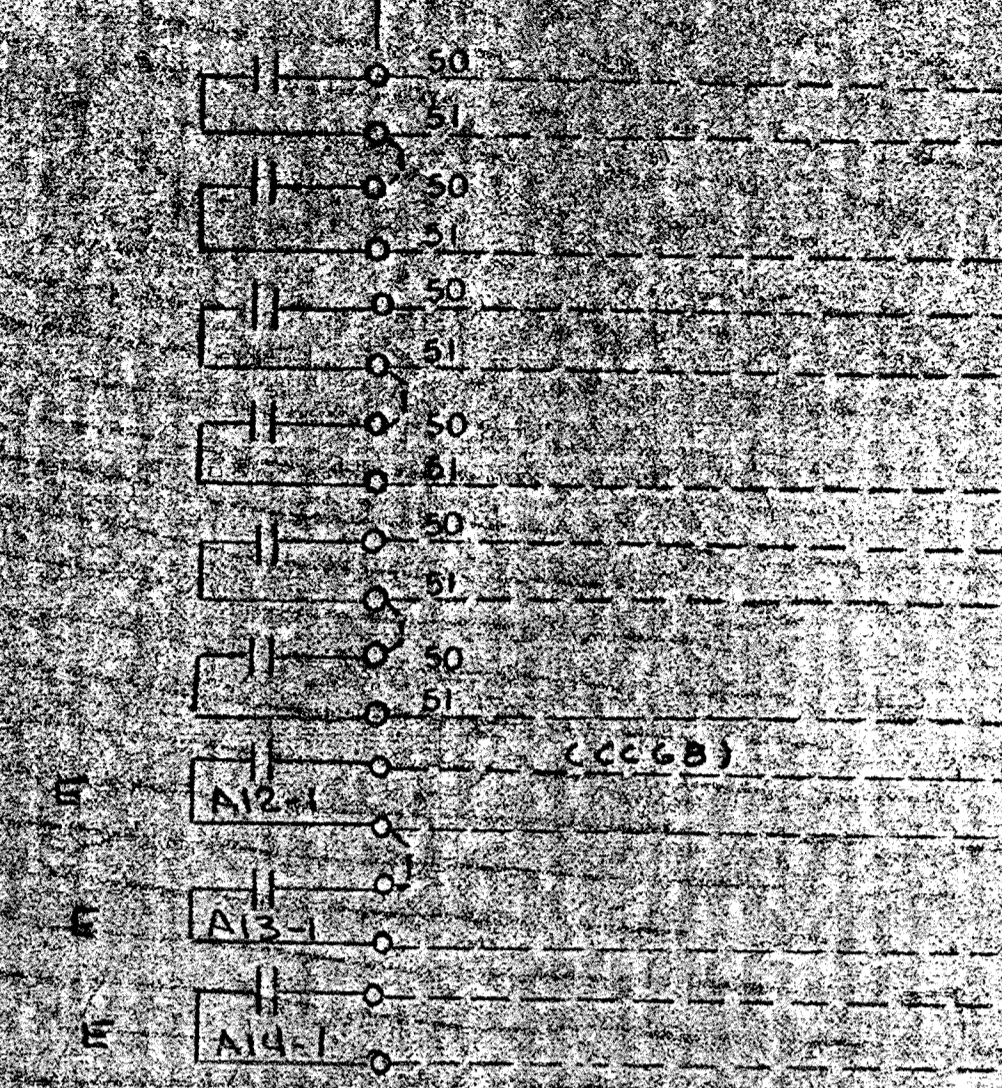 50
51
50
51
50
51
50
51
50
51
50
51
(CC6B)
E A12-1
E A13-1
E A14-1